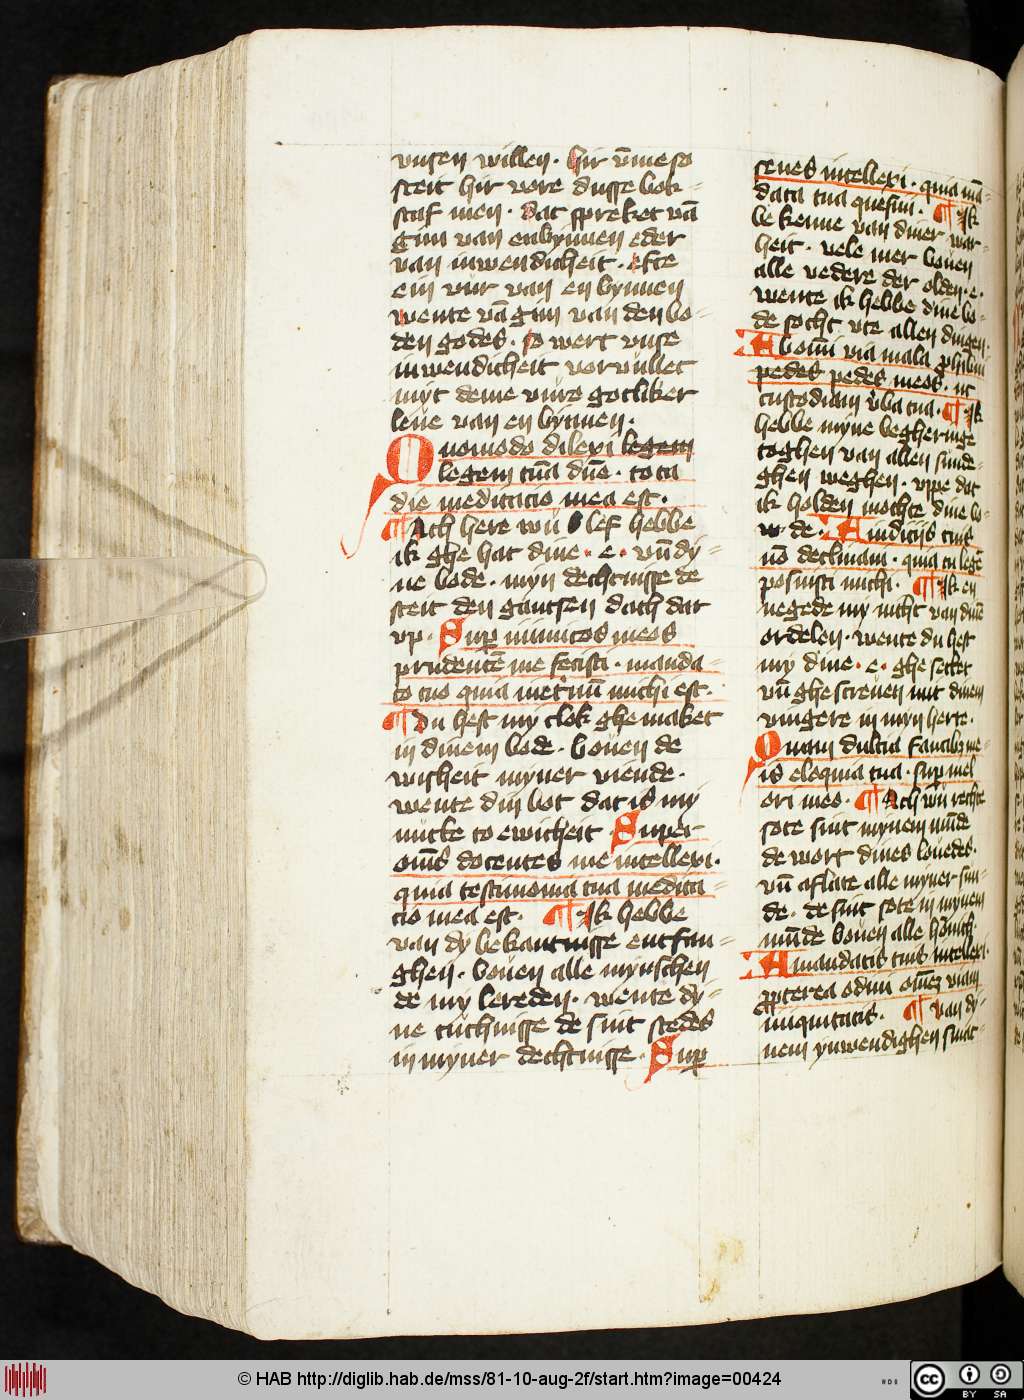 vnsen willen · hir v̄me so
steit hir vore dusse bok-
staf men · dat spreket vā
gim van enbynnen eder
van inwendicheit · efte
ein vur van en bynnen
wente vā gim van den bo-
den godes · so wert vnse
inwendicheit vorvullet
myt deme vure gotliker
leue van en bynnen ·
Quomodo dilexi legem
legem tuā dn̄e · tota
die meditatio mea est ·
¶ Ach here wu lef hebbe
ik ghe hat dine · e · vn̄ dy-
ne bode · myn dechtnisse de
steit den gantsen dach dar
vp · Sup inimicos meos
prudentē me fecisti · manda-
to tuo quia in eternū michi est ·
¶ Du hest my clok ghe maket
in dinem bode · bouen de
wisheit myner viende ·
wente din bot dat is my
nutte to ewicheit · Super
om̄s docentes me intellexi ·
quia testimonia tua medita-
tio mea est · ¶ Ik hebbe
van dy bekantnisse entfan-
ghen · bouen alle mynschen
de my lereden · wente dy-
ne tuchnisse de sint stedes
in myner dechtnisse · Sup
senes intellexi · quia mā-
data tua quesiui · ¶ Ik
be kenne van diner war-
heit · vele mer bouen
alle vedere der olden · e ·
wente ik hebbe dine bo-
de socht vte allen dingen ·
Ab omī via mala phibui
pedes pedes meos · ut
custodiam v̄ba tua · ¶ Ik
hebbe myne begheringe
toghen van allen sunde-
ghen weghen · vppe dat
ik holden mochte dine bo-
de · A iudicijs tuis
nō declinaui · quia tu legē
posuisti michi · ¶ Ik en
negede my nicht van dinē
ordelen · wente du hest
my dine · e · ghe settet
vn̄ ghe screuen mit dinem
vingere in myn herte ·
Quam dulcia faucibꝫ me-
is eloquia tua · sup mel
ori meo · ¶ Ach wu rechte
sote sint mynem mūde
de wort dines louedes ·
vn̄ aflate alle myner sun-
de · de sint sote in mynem
mūde bouen alle honich
A mandatis tuis intellexi ·
ppterea odiui om̄eꝫ viam
iniquitatis · ¶ van dy-
nem ynwendighen sunt-
© HAB http://diglib.hab.de/mss/81-10-aug-2f/start.htm?image=00424
CC BY SA